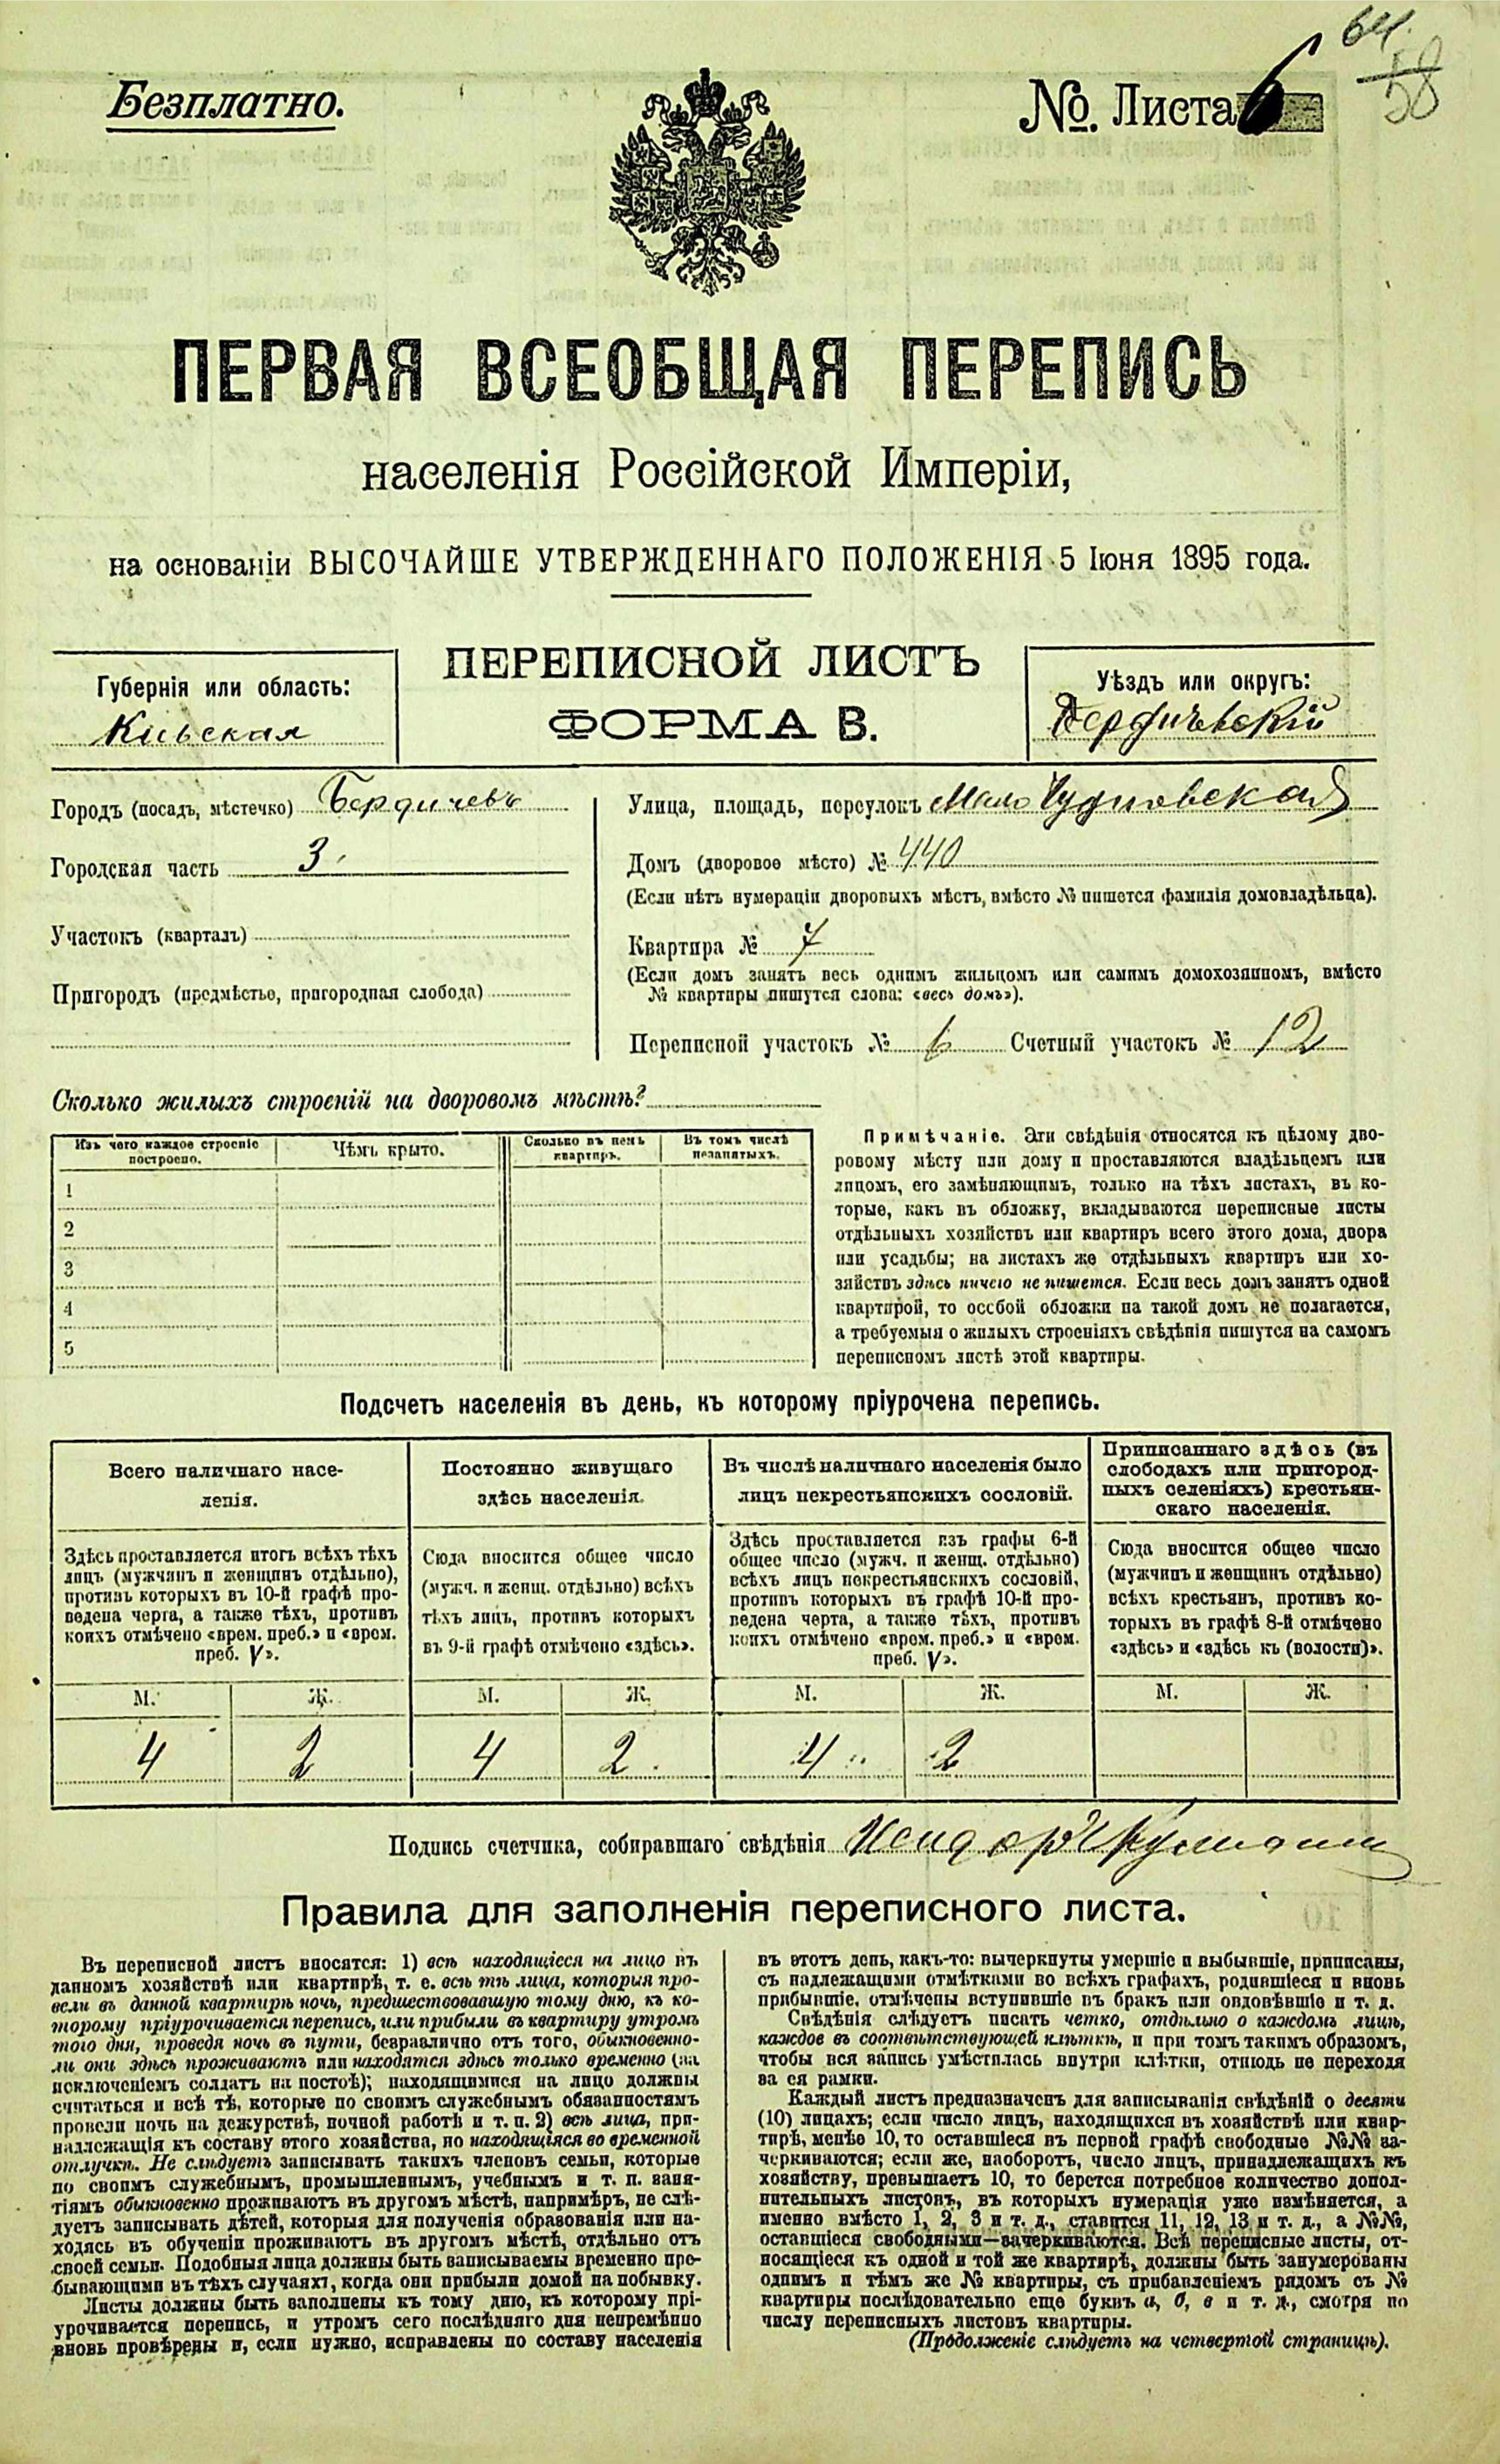 64.
58
Безплатно.
№. Листа 6
ПЕРВАЯ ВСЕОБЩАЯ ПЕРЕПИСЬ
населенія Россійской Имперіи,
на основаніи ВЫСОЧАЙШЕ УТВЕРЖДЕННАГО ПОЛОЖЕНІЯ 5 Іюня 1895 года.
ПЕРЕПИСНОЙ ЛИСТЪ
ФОРМА В.
Губернія или область:
Кіевская
Уѣздъ или округъ:
Бердичевскій
Городъ (посадъ, мѣстечко) Бердичевъ
Городская часть 3
Участокъ (кварталъ)
Пригородъ (предмѣстье, пригородная слобода)
Улица, площадь, переулокъ Мало Чудновская
Домъ (дворовое мѣсто) № 440
(Если нѣтъ нумераціи дворовыхъ мѣстъ, вмѣсто № пишется фамилія домовладѣльца).
Квартира № 7
(Если домъ занятъ весь однимъ жильцомъ или самимъ домохозяиномъ, вмѣсто
№ квартиры пишутся слова: «весь домъ»).
Переписной участокъ № 6 Счетный участокъ № 12
Сколько жилыхъ строеній на дворовомъ мѣстѣ?
Изъ чего каждое строеніе
построено.
Чѣмъ крыто.
Сколько въ немъ
квартиръ.
Въ томъ числѣ
незанятыхъ.
1
2
3
4
5
Примѣчаніе. Эти свѣдѣнія относятся къ цѣлому дво-
ровому мѣсту или дому и проставляются владѣльцемъ или
лицомъ, его замѣняющимъ, только на тѣхъ листахъ, въ ко-
торые, какъ въ обложку, вкладываются переписные листы
отдѣльныхъ хозяйствъ или квартиръ всего этого дома, двора
или усадьбы; на листахъ же отдѣльныхъ квартиръ или хо-
зяйствъ здѣсь ничего не пишется. Если весь домъ занятъ одной
квартирой, то особой обложки на такой домъ не полагается,
а требуемыя о жилыхъ строеніяхъ свѣдѣнія пишутся на самомъ
переписномъ листѣ этой квартиры.
Подсчетъ населенія въ день, къ которому пріурочена перепись.
Всего наличнаго насе-
ленія.
Здѣсь проставляется итогъ всѣхъ тѣхъ
лицъ (мужчинъ и женщинъ отдѣльно),
противъ которыхъ въ 10-й графѣ про-
ведена черта, а также тѣхъ, противъ
коихъ отмѣчено «врем. преб.» и «врем.
преб. V».
Постоянно живущаго
здѣсь населенія.
Сюда вносится общее число
(мужч. и женщ. отдѣльно) всѣхъ
тѣхъ лицъ, противъ которыхъ
въ 9-й графѣ отмѣчено «здѣсь».
Въ числѣ наличнаго населенія было
лицъ некрестьянскихъ сословій.
Здѣсь проставляется изъ графы 6-й
общее число (мужч. и женщ. отдѣльно)
всѣхъ лицъ некрестьянскихъ сословій,
противъ которыхъ въ графѣ 10-й про-
ведена черта, а также тѣхъ, противъ
коихъ отмѣчено «врем. преб.» и «врем.
преб. V».
Приписаннаго здѣсь (въ
слободахъ или пригород-
ныхъ селеніяхъ) крестьян-
скаго населенія.
Сюда вносится общее число
(мужчинъ и женщинъ отдѣльно)
всѣхъ крестьянъ, противъ ко-
торыхъ въ графѣ 8-й отмѣчено
«здѣсь» и «здѣсь къ (волости)».
М. Ж. М. Ж. М. Ж. М. Ж.
4 2 4 2 4 2
Подпись счетчика, собиравшаго свѣдѣнія Исидоръ
Правила для заполненія переписного листа.
Въ переписной листъ вносятся: 1) всѣ находящіеся на лицо въ
данномъ хозяйствѣ или квартирѣ, т. е. всѣ тѣ лица, которыя про-
вели въ данной квартирѣ ночь, предшествовавшую тому дню, къ ко-
торому пріурочивается перепись, или прибыли въ квартиру утромъ
того дня, проведя ночь въ пути, безразлично отъ того, обыкновенно-
ли они здѣсь проживаютъ или находятся здѣсь только временно (за
исключеніемъ солдатъ на постоѣ); находящимися на лицо должны
считаться и всѣ тѣ, которые по своимъ служебнымъ обязанностямъ
провели ночь на дежурствѣ, ночной работѣ и т. п. 2) всѣ лица, при-
надлежащія къ составу этого хозяйства, но находящіяся во временной
отлучкѣ. Не слѣдуетъ записывать такихъ членовъ семьи, которые
по своимъ служебнымъ, промышленнымъ, учебнымъ и т. п. заня-
тіямъ обыкновенно проживаютъ въ другомъ мѣстѣ, напримѣръ, не слѣ-
дуетъ записывать дѣтей, которыя для полученія образованія или на-
ходясь въ обученіи проживаютъ въ другомъ мѣстѣ, отдѣльно отъ
своей семьи. Подобныя лица должны быть записываемы временно пре-
бывающими въ тѣхъ случаяхъ, когда они прибыли домой на побывку.
Листы должны быть заполнены къ тому дню, къ которому прі-
урочивается перепись, и утромъ сего послѣдняго дня непремѣнно
вновь провѣрены и, если нужно, исправлены по составу населенія
въ этотъ день, какъ-то: вычеркнуты умершіе и выбывшіе, приписаны,
съ надлежащими отмѣтками во всѣхъ графахъ, родившіеся и вновь
прибывшіе, отмѣчены вступившіе въ бракъ или овдовѣвшіе и т. д.
Свѣдѣнія слѣдуетъ писать четко, отдѣльно о каждомъ лицѣ,
каждое въ соотвѣтствующей клѣткѣ, и при томъ такимъ образомъ,
чтобы вся запись умѣстилась внутри клѣтки, отнюдь не переходя
за ея рамки.
Каждый листъ предназначенъ для записыванія свѣдѣній о десяти
(10) лицахъ; если число лицъ, находящихся въ хозяйствѣ или квар-
тирѣ, менѣе 10, то оставшіеся въ первой графѣ свободные №№ за-
черкиваются; если же, наоборотъ, число лицъ, принадлежащихъ къ
хозяйству, превышаетъ 10, то берется потребное количество допол-
нительныхъ листовъ, въ которыхъ нумерація уже измѣняется, а
именно вмѣсто 1, 2, 3 и т. д., ставится 11, 12, 13 и т. д., а №№,
оставшіеся свободными—зачеркиваются. Всѣ переписные листы, от-
носящіеся къ одной и той же квартирѣ, должны быть занумерованы
однимъ и тѣмъ же № квартиры, съ прибавленіемъ рядомъ съ №
квартиры послѣдовательно еще буквъ а, б, в и т. д., смотря по
числу переписныхъ листовъ квартиры.
(Продолженіе слѣдуетъ на четвертой страницѣ).